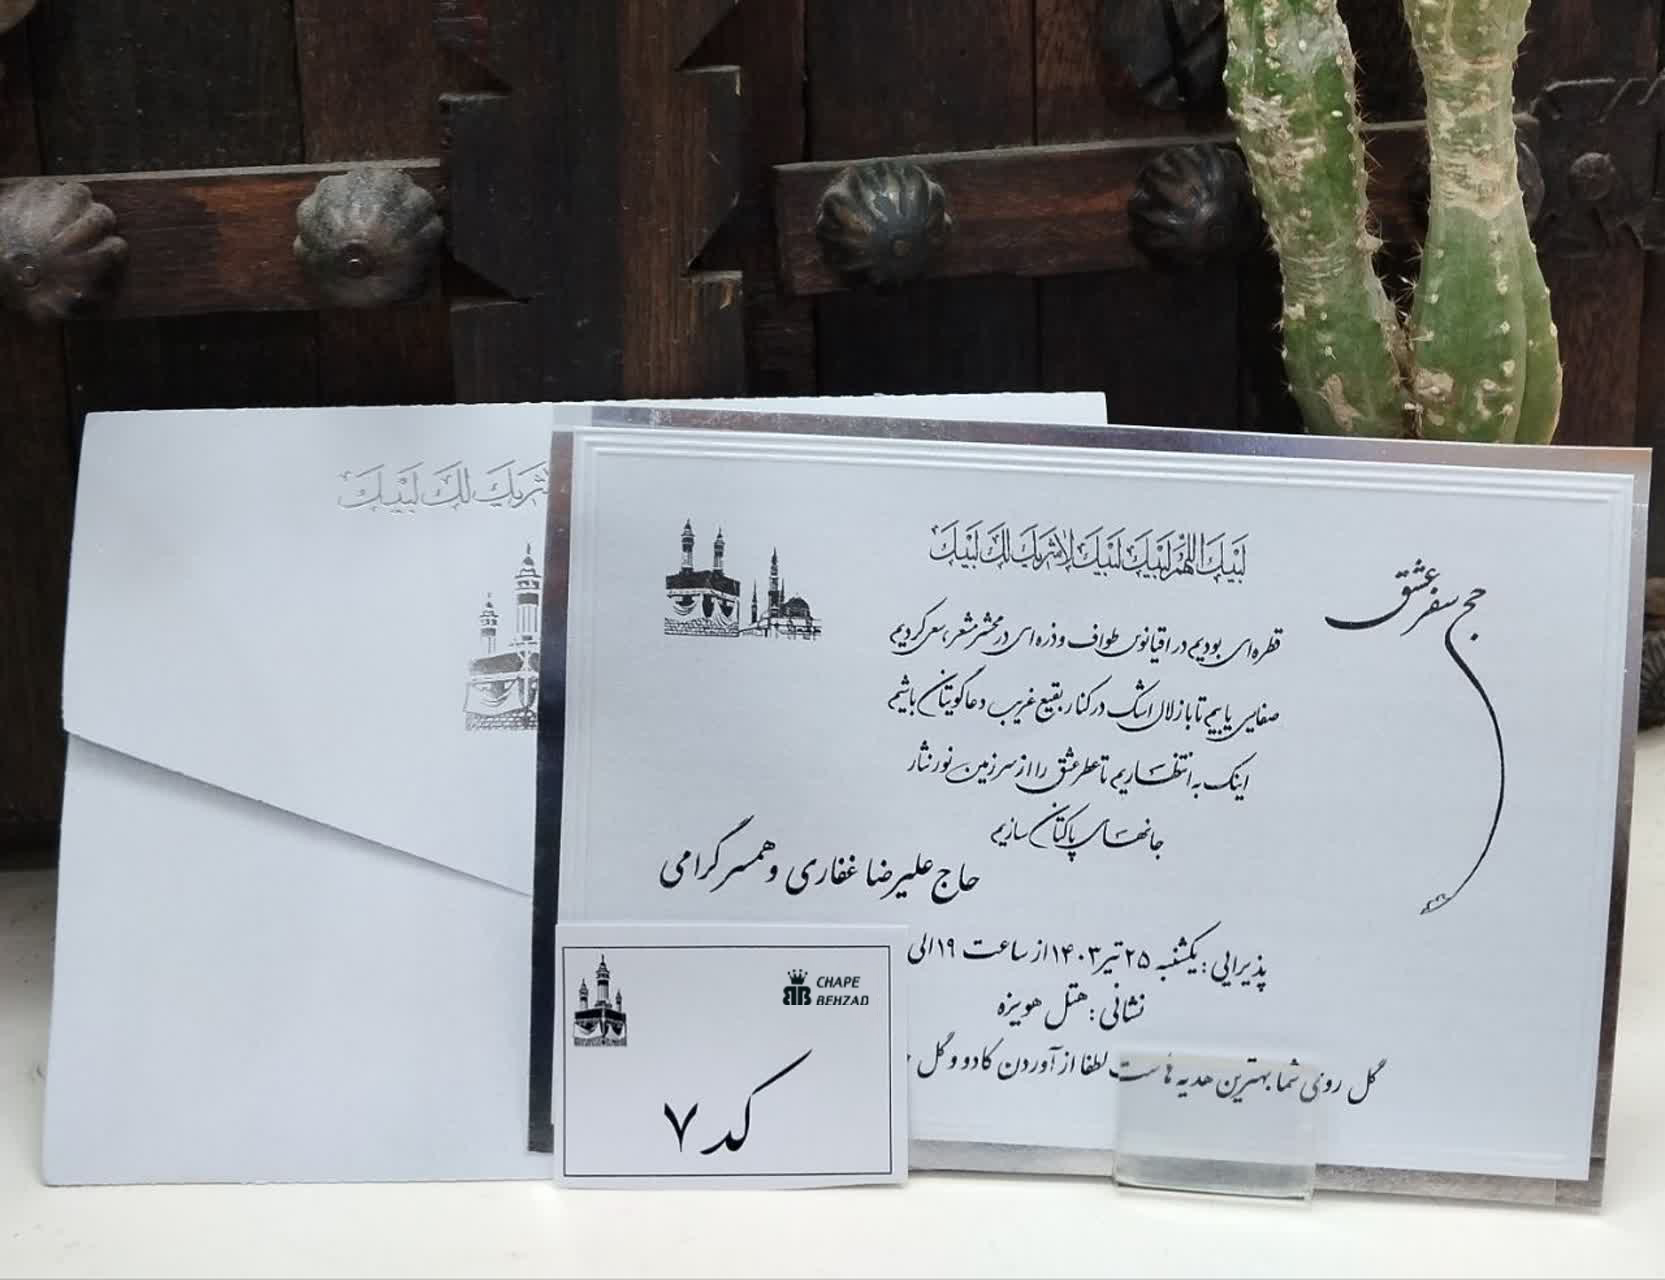 لاشریك لك لبیك
لَبَّيْكَ اللّهُمَّ لَبَّيْكَ لَبَّيْكَ لاشَرِيكَ لَكَ لَبَّيْكَ
حج سفر عشق
قطره ای بودیم در اقیانوس طواف و ذره ای در محشر مشعر، سعی کردیم
صفایی یابیم تا با زلال اشک در کنار بقیع غریب دعاگویتان باشیم
اینک به انتظاریم تا عطر عشق را از سرزمین نور نثار
جانهای پاکتان سازیم
حاج علیرضا غفاری و همسر گرامی
پذیرایی : یکشنبه ۲۵ تیر ۱۴۰۳ از ساعت ۱۹ الی
نشانی : هتل هویزه
گل روی شما بهترین هدیه هاست لطفا از آوردن کادو و گل
CHAPE
BEHZAD
کد ۷